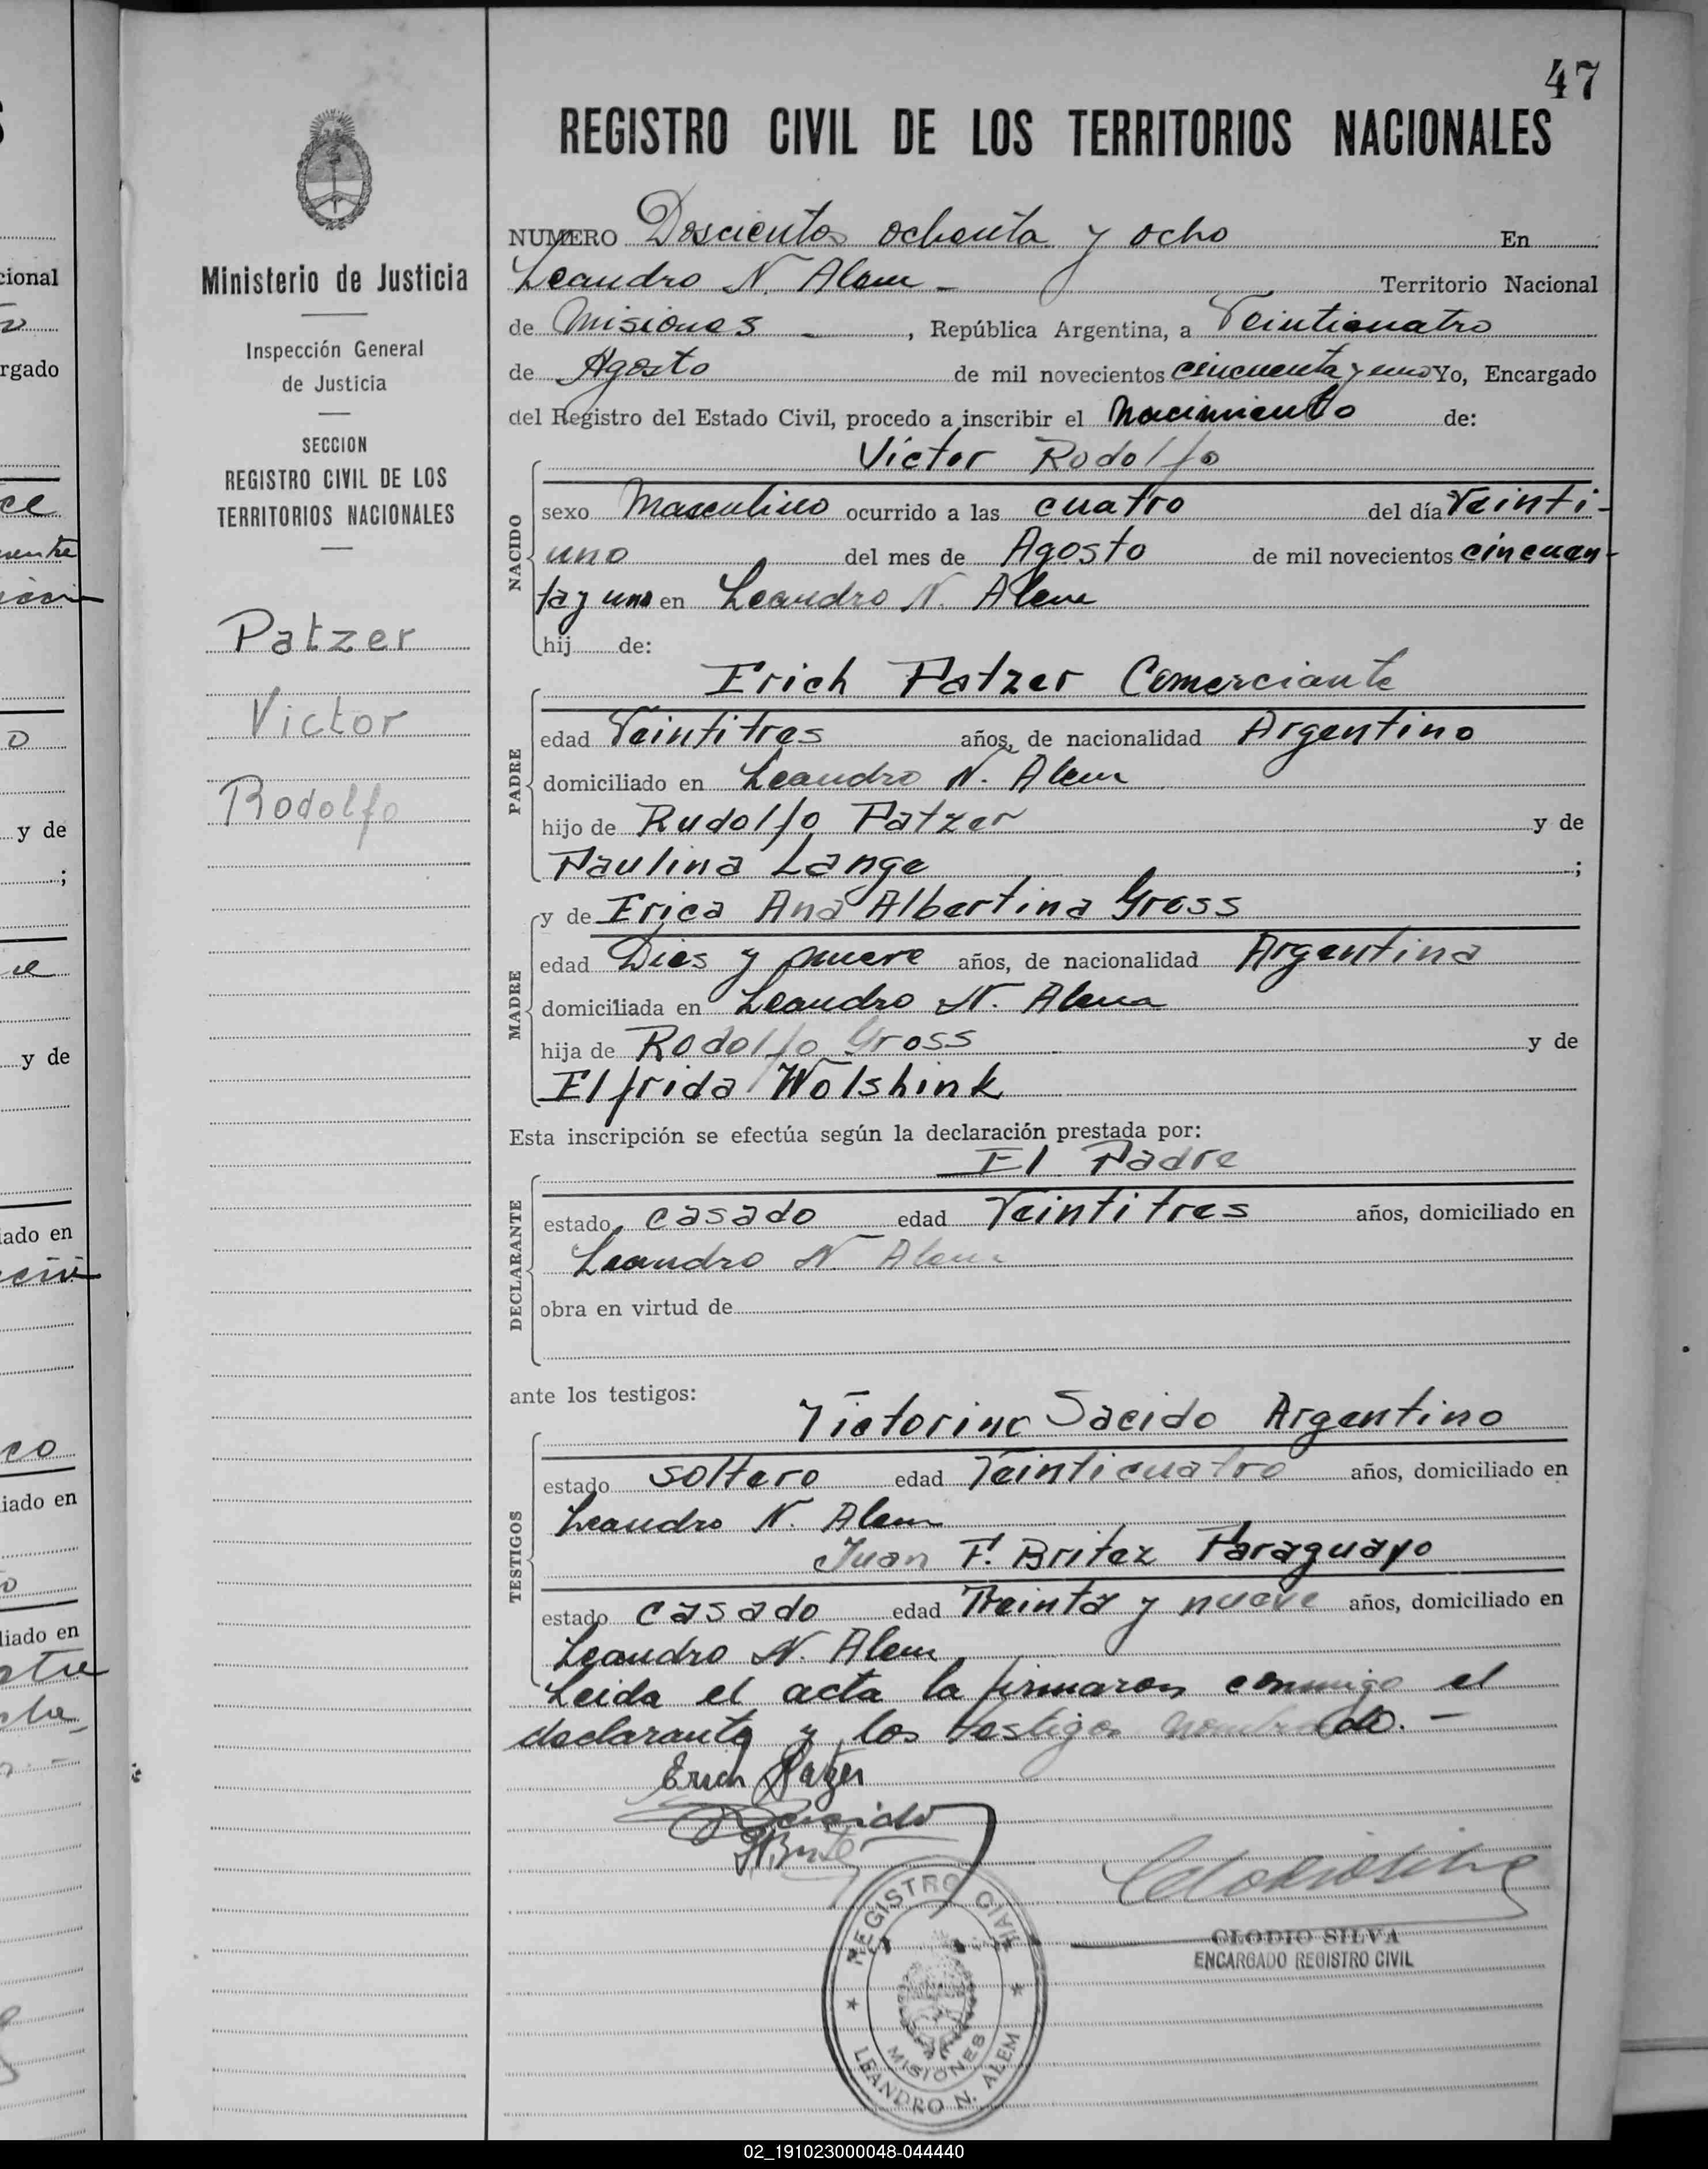 47
REGISTRO CIVIL DE LOS TERRITORIOS NACIONALES
Ministerio de Justicia
Inspección General
de Justicia
SECCION
REGISTRO CIVIL DE LOS
TERRITORIOS NACIONALES
Patzer
Victor
Rodolfo
NUMERO Doscientos ochenta y ocho En
Leandro N. Alem - Territorio Nacional
de Misiones - , República Argentina, a Veinticuatro
de Agosto de mil novecientos cincuenta y uno Yo, Encargado
del Registro del Estado Civil, procedo a inscribir el nacimiento de:
Víctor Rodolfo
NACIDO
sexo Masculino ocurrido a las cuatro del día Veinti-
uno del mes de Agosto de mil novecientos cincuen-
ta y uno en Leandro N. Alem
hij de:
Erich Patzer Comerciante
PADRE
edad Veintitres años, de nacionalidad Argentino
domiciliado en Leandro N. Alem
hijo de Rudolfo Patzer y de
Paulina Lange ;
y de Erica Ana Albertina Gross
MADRE
edad Dies y nueve años, de nacionalidad Argentina
domiciliada en Leandro N. Alem
hija de Rodolfo Gross y de
Elfrida Wolshink
Esta inscripción se efectúa según la declaración prestada por:
El Padre
DECLARANTE
estado casado edad Veintitres años, domiciliado en
Leandro N. Alem
obra en virtud de
ante los testigos:
Victorino Sacido Argentino
TESTIGOS
estado soltero edad Veinticuatro años, domiciliado en
Leandro N. Alem
Juan F. Britez Paraguayo
estado casado edad Treinta y nueve años, domiciliado en
Leandro N. Alem
Leida el acta la firmaron conmigo el
declarante y los testigos nombrado. -
Erich Patzer
Sacido
CLODIO SILVA
ENCARGADO REGISTRO CIVIL
REGISTRO CIVIL
MISIONES
LEANDRO N. ALEM
cional
rgado
y de
;
y de
iado en
iado en
liado en
02_191023000048-044440